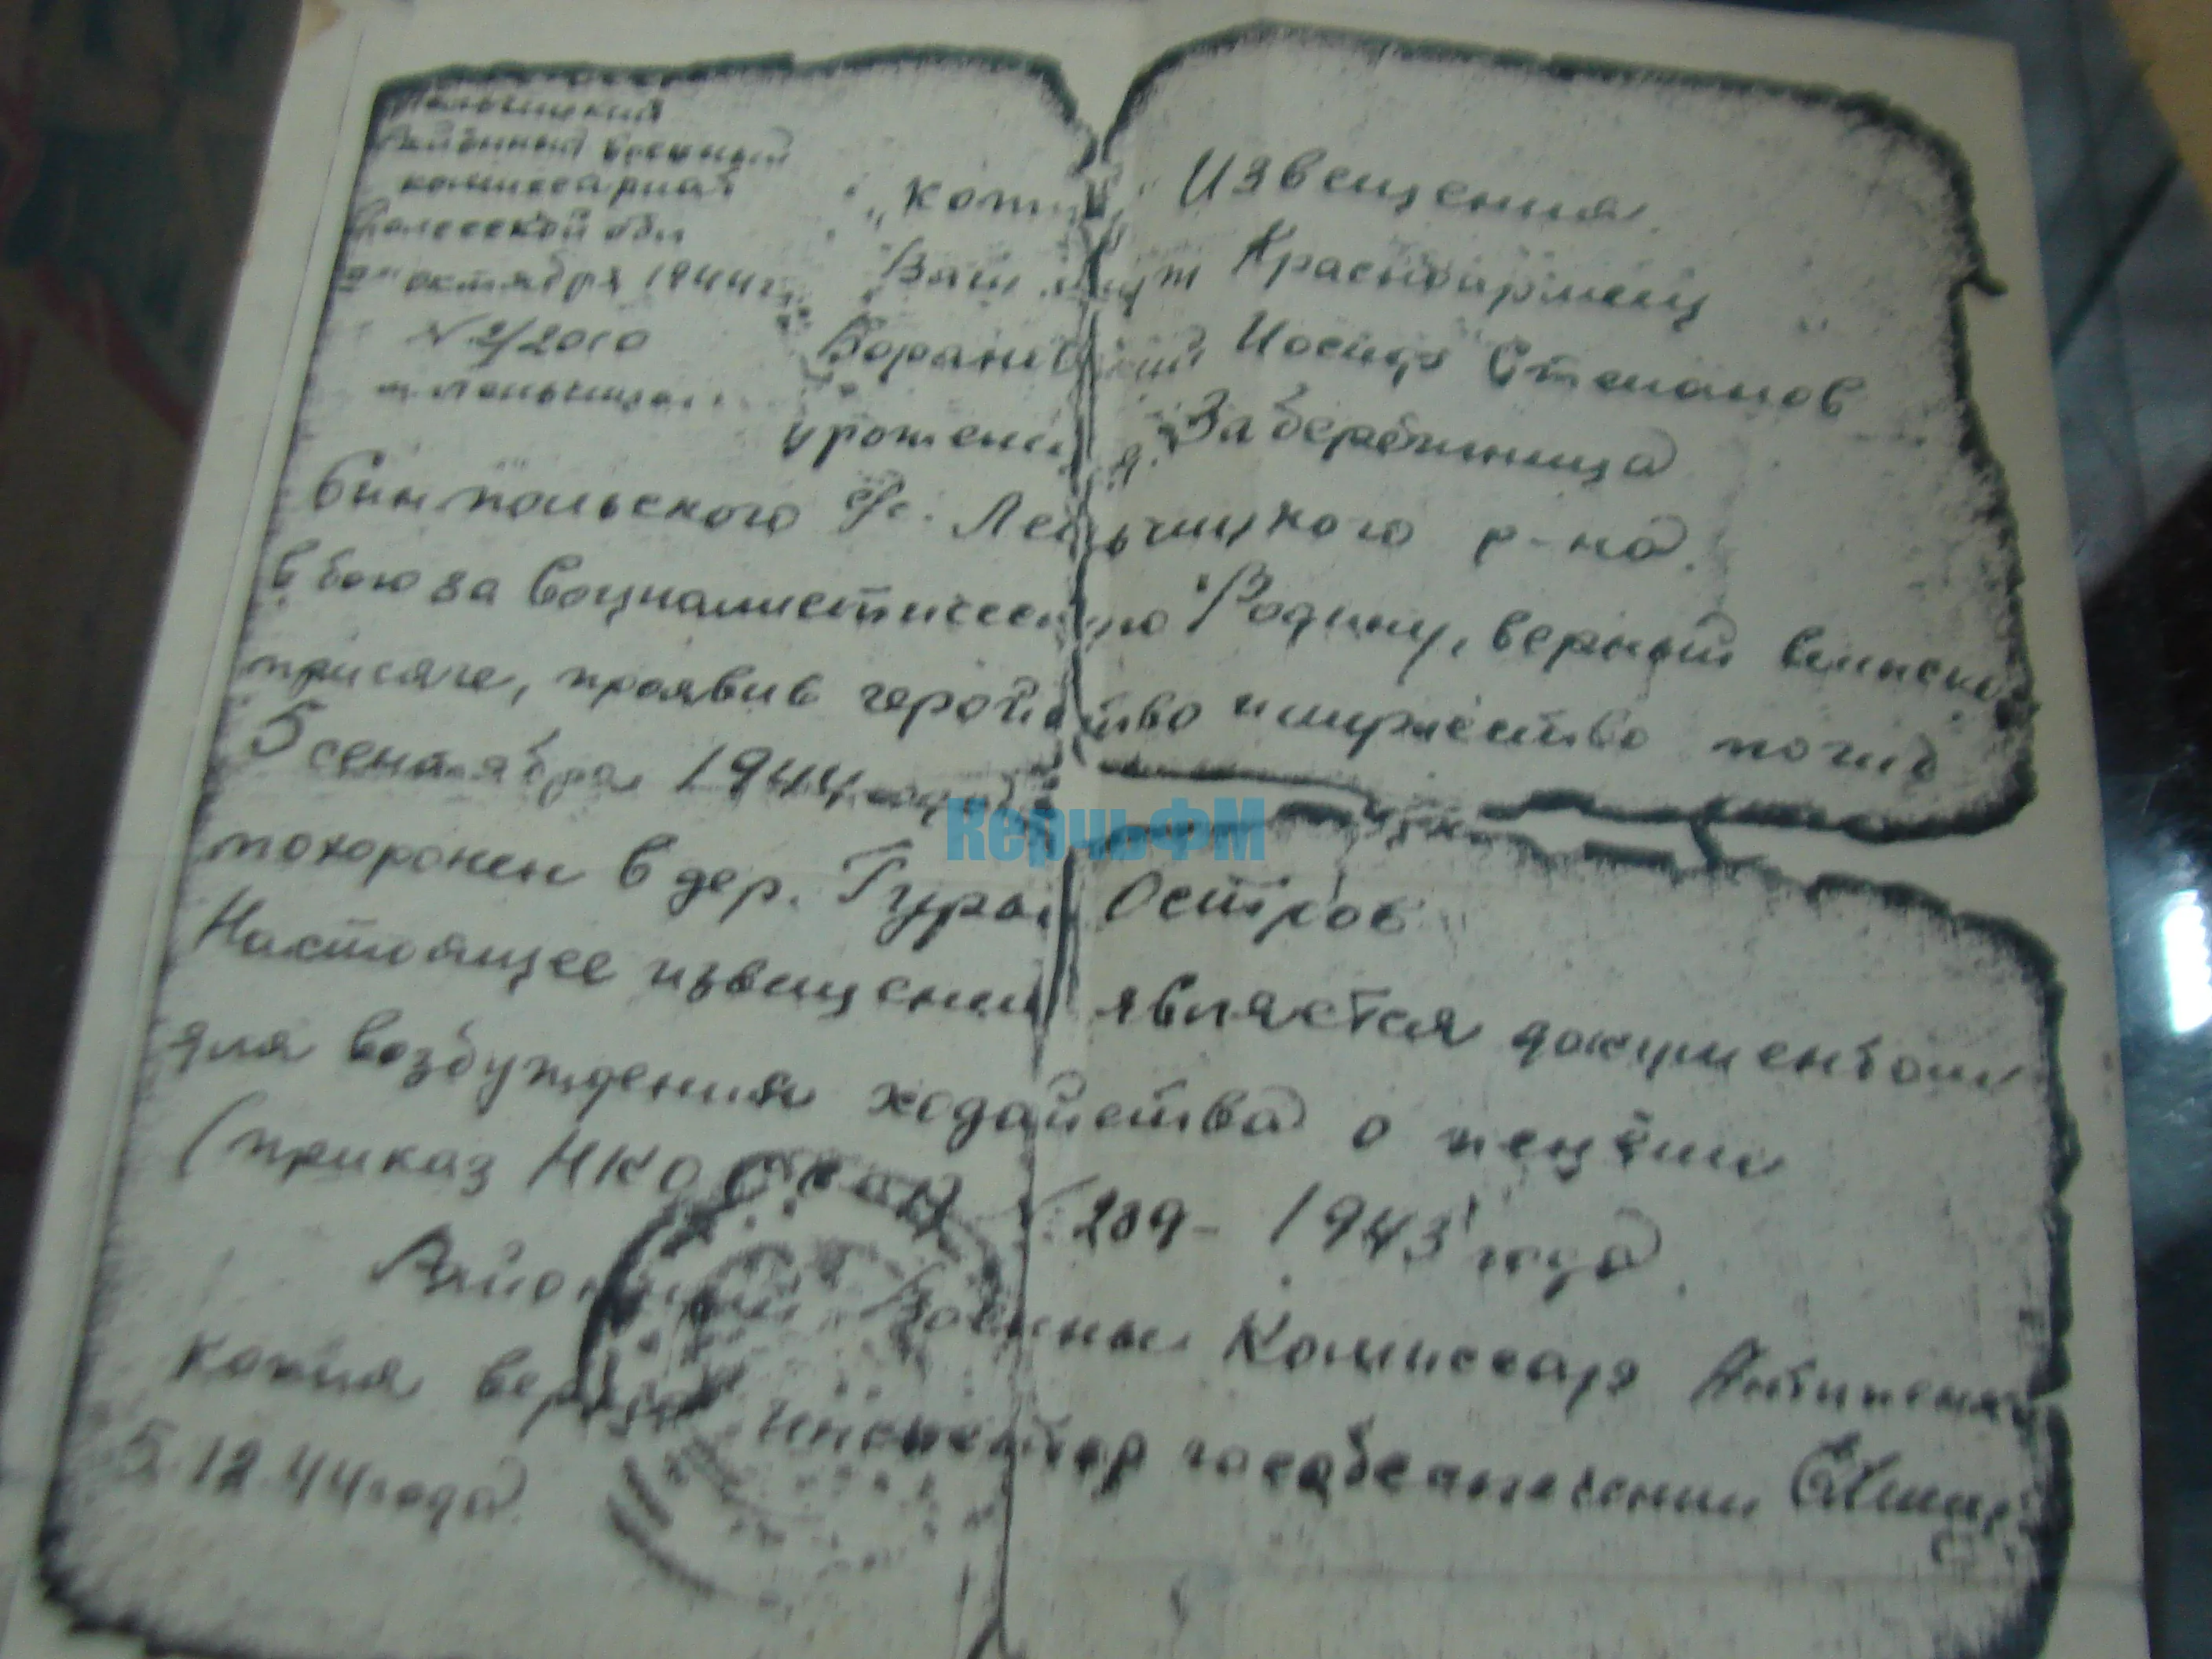 Лельчицкий
Районный военный
комиссариат
Полесской обл
октября 1944г.
№ 2/2010
м Лельчицы
"Копия" Извещения
Ваш муж Красноармеец
Иосиф Степанов
урожени д. Забережница
с/с. Лельчицкого р-на.
в бою за Социалистическую Родину, верный воинской
присяге, проявив геройство и мужество погиб
5 сентября 1944 года
похоронен в дер. Гура Остров
Настоящее извещение является документом
для возбуждения ходайства о пенции
(приказ НКО СССР № 209 - 1943 года
Районный Военны Комиссар
копия верна инспектор гособеспечении
5. 12. 44 года
КерчьФМ